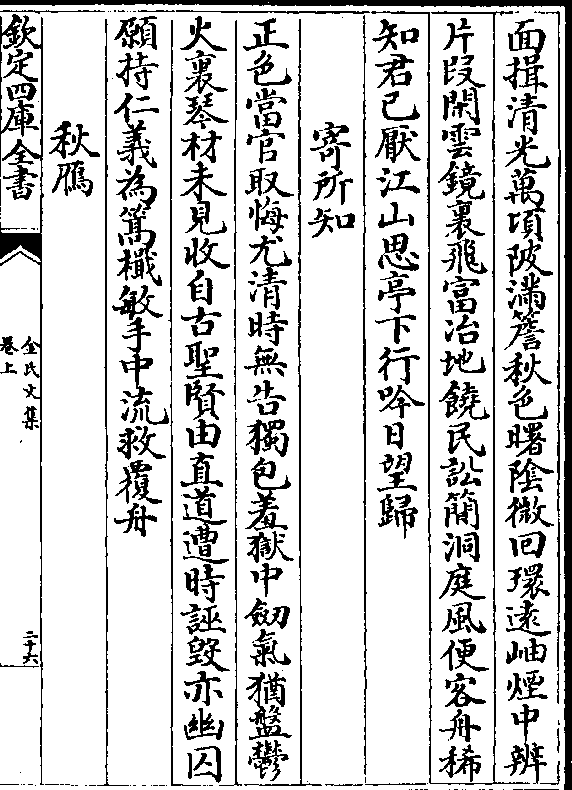 面揖清光萬頃陂滿簷秋色曙陰微回環遠岫煙中辨
片段閑雲鏡裏飛富冶地饒民訟簡洞庭風便客舟稀
知君已厭江山思亭下行吟日望歸
寄所知
正色當官取悔尤清時無告獨包羞獄中劒氣猶盤鬱
火裏琴材未見收自古聖賢由直道遭時誣毀亦幽囚
願持仁義為篙檝敏手中流救覆舟
秋鴈
欽定四庫全書
金氏文集
卷上
二十六